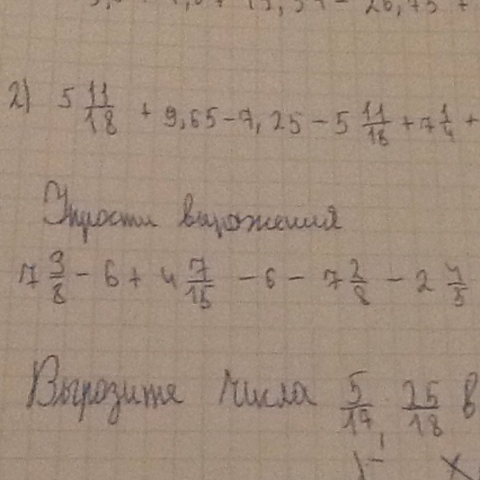 2) 5 11/18 + 9,65 - 7,25 - 5 11/18 + 7 1/4 +
Упрости выражения
7 9/8 - 6 + 4 7/15 - 6 - 7 2/8 - 2 4/5
Выразите числа 5/17, 25/18 в